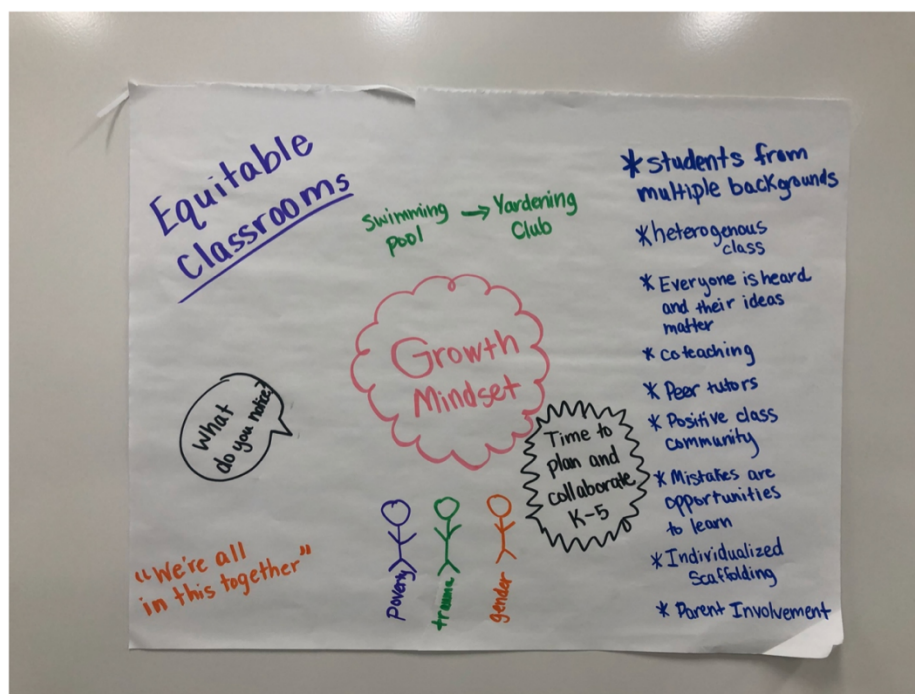 Equitable
Classrooms
Swimming → Yardening
pool Club
Growth
Mindset
What
do you notice?
Time to
plan and
collaborate
K-5
poverty
trauma
gender
"We're all
in this together"
* students from
multiple backgrounds
* heterogenous
class
* Everyone is heard
and their ideas
matter
* coteaching
* Peer tutors
* Positive class
community
* Mistakes are
opportunities
to learn
* Individualized
Scaffolding
* Parent Involvement